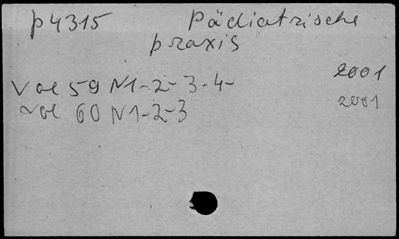 p4315 Pädiatrische
praxis
Vol 59 N1-2-3-4- 2001
Vol 60 N1-2-3 2001